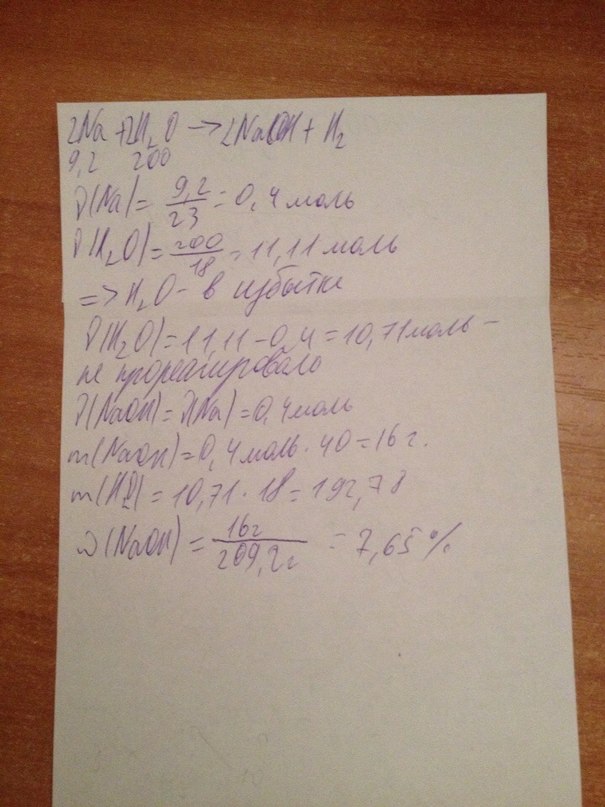 2Na + 2H₂O → 2NaOH + H₂
9,2 200
ν(Na) = 9,2/23 = 0,4 моль
ν(H₂O) = 200/18 = 11,11 моль
=> H₂O - в избытке
ν(H₂O) = 11,11 - 0,4 = 10,71 моль -
не прореагировало
ν(NaOH) = ν(Na) = 0,4 моль
m(NaOH) = 0,4 моль · 40 = 16 г.
m(H₂O) = 10,71 · 18 = 192,78
ω(NaOH) = 16г/209,2г = 7,65 %